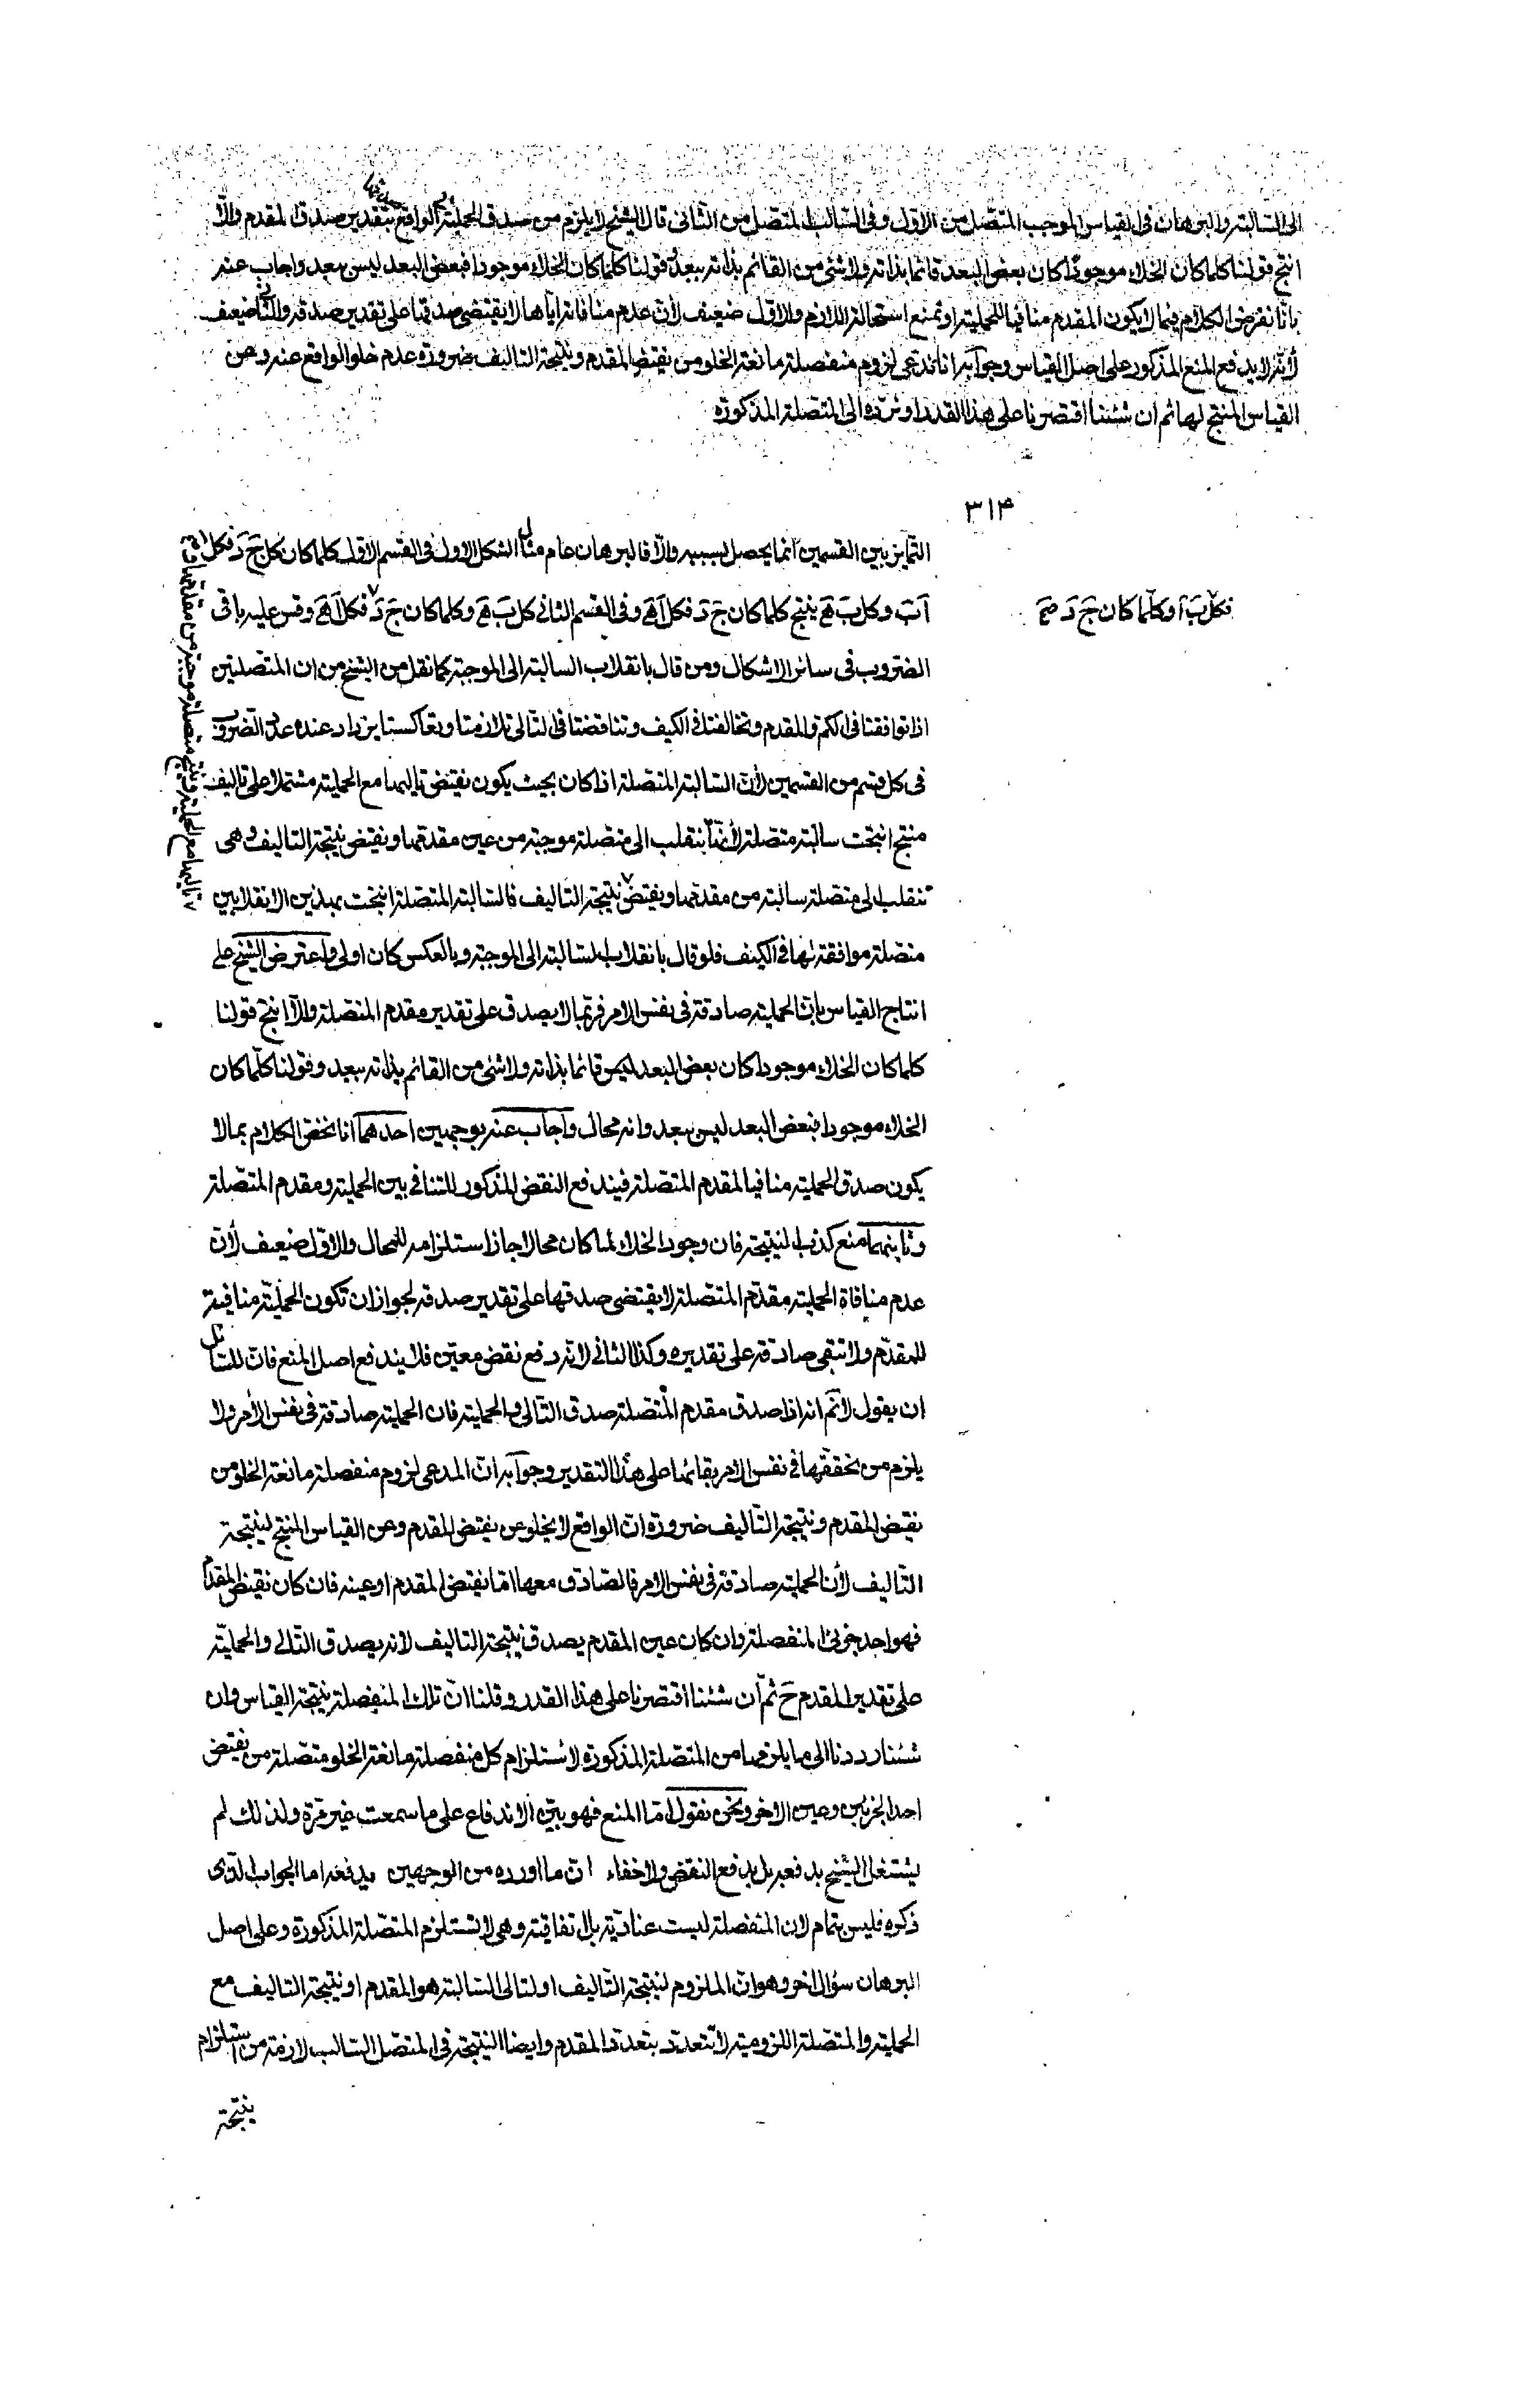 الى السالبة والبرهان فى القياس الموجب المتصل من الاول وفى السالب المتصل من الثانى قال الشيخ لا يلزم من صدق الحملية فى الواقع صدقها بتقدير صدق المقدم والا
انتج قولنا كلما كان الخلاء موجودا كان بعض البعد قائما بذاته ولا شئ من القائم بذاته ببعد قولنا كلما كان الخلاء موجودا فبعض البعد ليس ببعد واجاب عنه
بانا نفرض الكلام فيما لا يكون المقدم منافيا للحملية او نمنع استحالة اللازم والاول ضعيف لأن عدم منافاته اياها لا يقتضى صدقها على تقدير صدقه والثانى ضعيف
لأنه لا يدفع المنع المذكور على اصل القياس وجوابه انا ندعى لزوم منفصلة مانعة الخلو من نقيض المقدم ونتيجة التاليف ضرورة عدم خلو الواقع عنه وعن
القياس المنتج لها ثم ان شئنا اقتصرنا على هذا القدر او نرده الى المتصلة المذكورة
٣١٤
التمايز بين القسمين انما يحصل بسببه والا فالبرهان عام مثال الشكل الاول فى القسم الاول كلما كان كل ج د فكل
آب وكل ب ه ينتج كلما كان ج د فكل آه وفى القسم الثانى كل ب ه وكلما كان ج د فكل آه وقس عليه باقى
فكل ب آ وكلما كان ج د صح
الضروب فى سائر الاشكال ومن قال بانقلاب السالبة الى الموجبة كما نقل من الشيخ من ان المتصلتين
اذا توافقتا فى الكم والمقدم وتخالفتا فى الكيف وتناقضتا فى التالى تلازمتا وتعاكستا يزداد عنده عدد الضروب
فى كل قسم من القسمين لأن السالبة المتصلة اذا كان بحيث يكون نقيض تاليها مع الحملية مشتملا على تاليف
منتج انتجت سالبة متصلة لأنها تنقلب الى متصلة موجبة من عين مقدمها ونقيض نتيجة التاليف وهى
تنقلب الى متصلة سالبة من مقدمها ونقيض نتيجة التاليف فالسالبة المتصلة انتجت بهذين الانقلابين
تاليها مع الحملية وينتج متصلة موجبة من مقدمها
متصلة موافقة لها فى الكيف فلو قال بانقلاب السالبة الى الموجبة وبالعكس كان اولى واعترض الشيخ على
انتاج القياس بان الحملية صادقة فى نفس الامر فربما لا يصدق على تقدير مقدم المتصلة والا انتج قولنا
كلما كان الخلاء موجودا كان بعض البعد ليس قائما بذاته ولا شئ من القائم بذاته ببعد وقولنا كلما كان
الخلاء موجودا فبعض البعد ليس ببعد وانه محال واجاب عنه بوجهين احدهما انا نخص الكلام بما لا
يكون صدق الحملية منافيا لمقدم المتصلة فيندفع النقض المذكور للتنافى بين الحملية ومقدم المتصلة
وثانيهما منع كذب النتيجة فان وجود الخلاء لما كان محالا جاز استلزامه للمحال والاول ضعيف لأن
عدم منافاة الحملية مقدم المتصلة لا يقتضى صدقها على تقدير صدقه لجواز ان تكون الحملية منافية
للمقدم ولا تبقى صادقة على تقديره وكذا الثانى لانه دفع نقض معين فلا يندفع اصل المنع فان للسائل
ان يقول لا نم انه اذا صدق مقدم المتصلة صدق التالى والحملية فان الحملية صادقة فى نفس الأمر ولا
يلزم من تحققها فى نفس الامر بقائها على هذا التقدير وجوابه ان المدعى لزوم منفصلة مانعة الخلو من
نقيض المقدم ونتيجة التاليف ضرورة ان الواقع لا يخلو عن نقيض المقدم وعن القياس المنتج لنتيجة
التاليف لأن الحملية صادقة فى نفس الامر فالصادق معها اما نقيض المقدم او عينه فان كان نقيض المقدم
فهو احد جزئى المنفصلة وان كان عين المقدم يصدق نتيجة التاليف لانه يصدق التالى والحملية
على تقدير المقدم ح ثم ان شئنا اقتصرنا على هذا القدر وقلنا ان تلك المنفصلة نتيجة القياس وان
شئنا رددنا الى ما يلزمها من المتصلة المذكورة لاستلزام كل منفصلة مانعة الخلو متصلة من نقيض
احد الجزئين وعين الاخر ونحن نقول اما المنع فهو بين الاندفاع على ما سمعت غير مرة ولذلك لم
يشتغل الشيخ بدفعه بل بدفع النقض ولا خفاء ان ما اورده من الوجهين يدفعه اما الجواب الذى
ذكره فليس بتمام لان المنفصلة ليست عنادية بل اتفاقية وهى لا تستلزم المتصلة المذكورة وعلى اصل
البرهان سؤال اخر وهو ان الملزوم لنتيجة التاليف او لتالى السالبة هو المقدم او نتيجة التاليف مع
الحملية والمتصلة اللزومية لا تتعدد بتعدد المقدم وايضا النتيجة فى المتصل السالب لازمة من استلزام
نتيجة